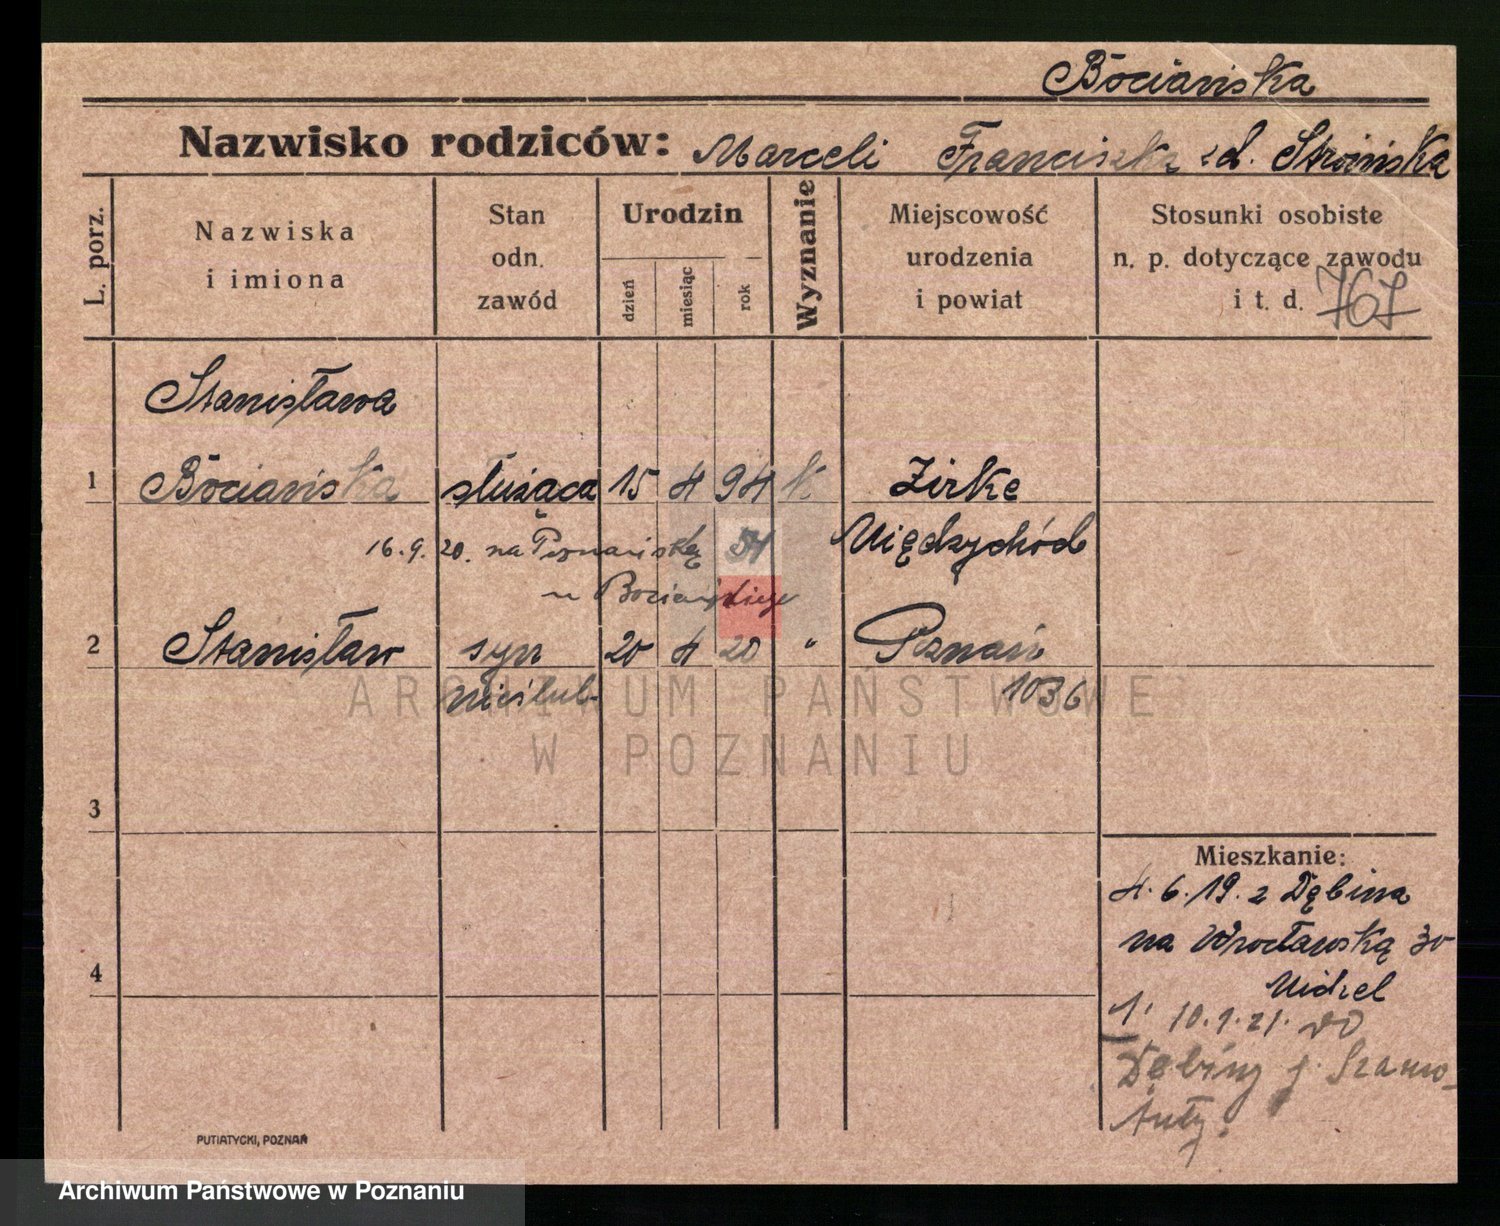 Bociańska
Nazwisko rodziców: Marceli Franciszka zd. Stroińska
L. porz.
Nazwiska i imiona
Stan odn. zawód
Urodzin
dzień
miesiąc
rok
Wyznanie
Miejscowość urodzenia i powiat
Stosunki osobiste n. p. dotyczące zawodu i t. d.
767
Stanisława
1 Bociańska służąca 15 4 94 k Zirke
16.9.20. na Poznańską 54 Międzychód
Bociańskiego
2 Stanisław syn 20 4 20 " Poznań
nieślub. 1036
3
4
Mieszkanie:
4.6.19. z Dębina
na Wrocławską 30
1. 10.1.21. do
Dębiny p. Szamo-
tuły.
PUTIATYCKI, POZNAŃ
ARCHIWUM PAŃSTWOWE
W POZNANIU
Archiwum Państwowe w Poznaniu